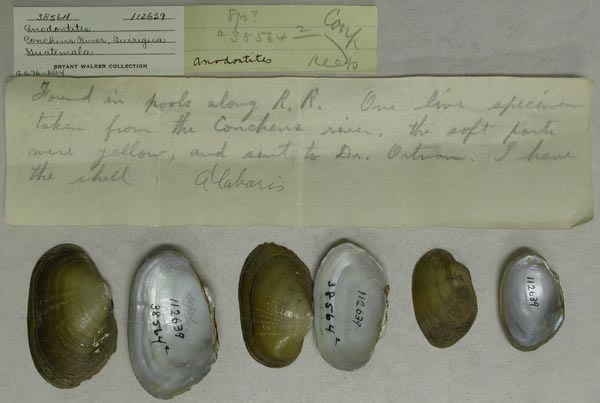 38564 112639
Anodontites
Conchins River, Quirigua
Guatemala
BRYANT WALKER COLLECTION
A.A. Hinkley
Fp?
38564
anodontites
Found in pools along R.R. One live specimen
taken from the Conchens river. the soft parts
were yellow, and sent to Dr. Ortman. I have
the shell
112639
38564
38564
112639
112639